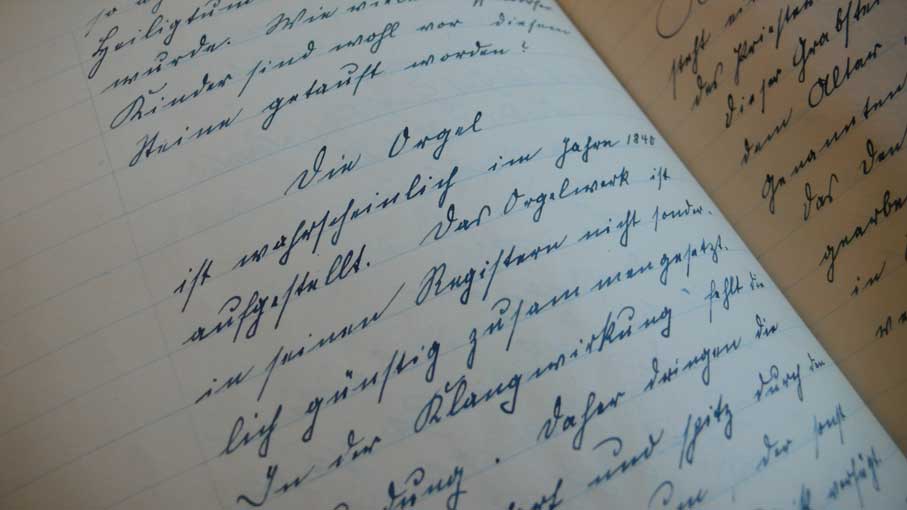 Heiligtum
wurde. Wie viele
Kinder sind wohl vor diesem
Steine getauft worden?
Die Orgel
ist wahrscheinlich im Jahre 1840
aufgestellt. Das Orgelwerk ist
in seinen Registern nicht sonder-
lich günstig zusammengesetzt.
In der Klangwirkung fehlt die
Daher dringen die
und spitz durch den
der sonst
verfügt.
steht
des Priesters
dieser Grabstei
dem Altar
genannten
das den
gearbe
in